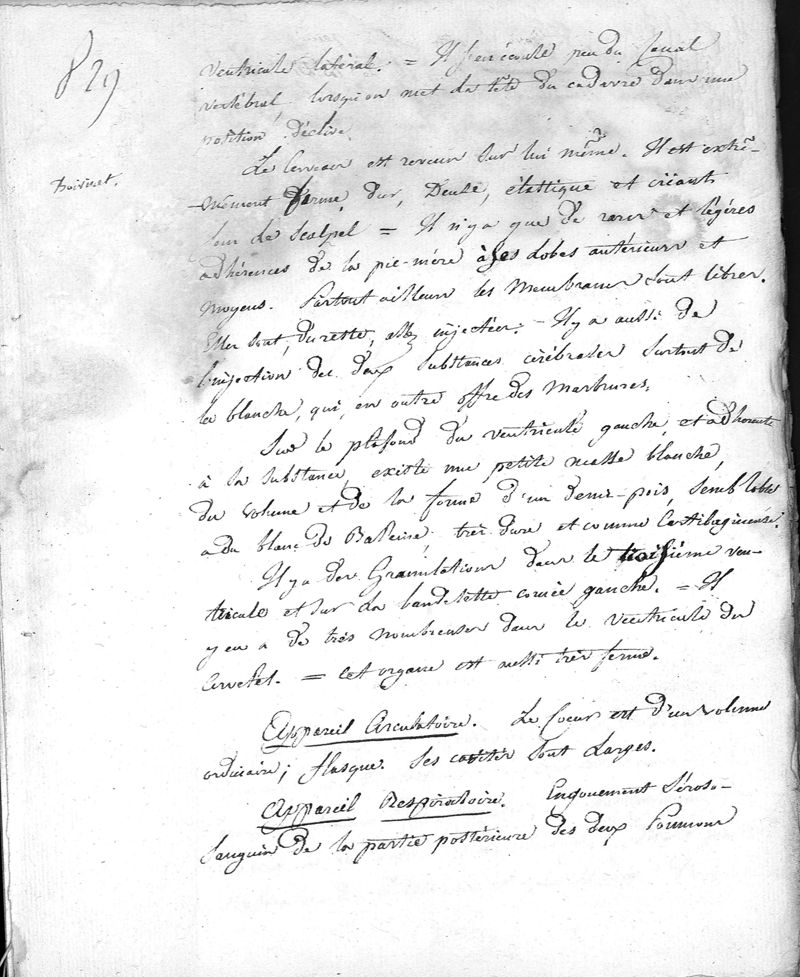 829
ventricule latéral. = Il s'en écoule peu du canal
vertébral, lorsqu'on met la tête du cadavre dans une
position déclive.
Boivinet.
Le Cerveau est revenu sur lui même. Il est extrê-
-mement ferme, dur, Dense, élastique et criant
sous le scalpel = Il n'y a que de rares et légères
adhérences de la pie-mère à ses lobes antérieurs et
moyens. Partout ailleurs les Membranes sont libres.
Elles sont, du reste, assez injectées. - Il y a aussi de
l'injection des deux substances cérébrales surtout de
la blanche, qui, en outre offre des Marbrures.
Sur le plafond du ventricule gauche, et adhérente
à sa substance, existe une petite masse blanche,
du volume et de la forme d'un demi-pois, semblable
a du blanc de Baleine très dure et comme Cartilagineuse.
Il y a des Granulations dans le troisième ven-
tricule et sur la bandelette cornée gauche. = Il
y en a de très nombreuses dans le Ventricule du
Cervelet. = Cet organe est aussi très ferme.
Appareil Circulatoire. Le Coeur est d'un volume
ordinaire; flasque. Ses cavités sont Larges.
Appareil Respiratoire. Engouement Séroso-
Sanguin de la partie postérieure des deux Poumons